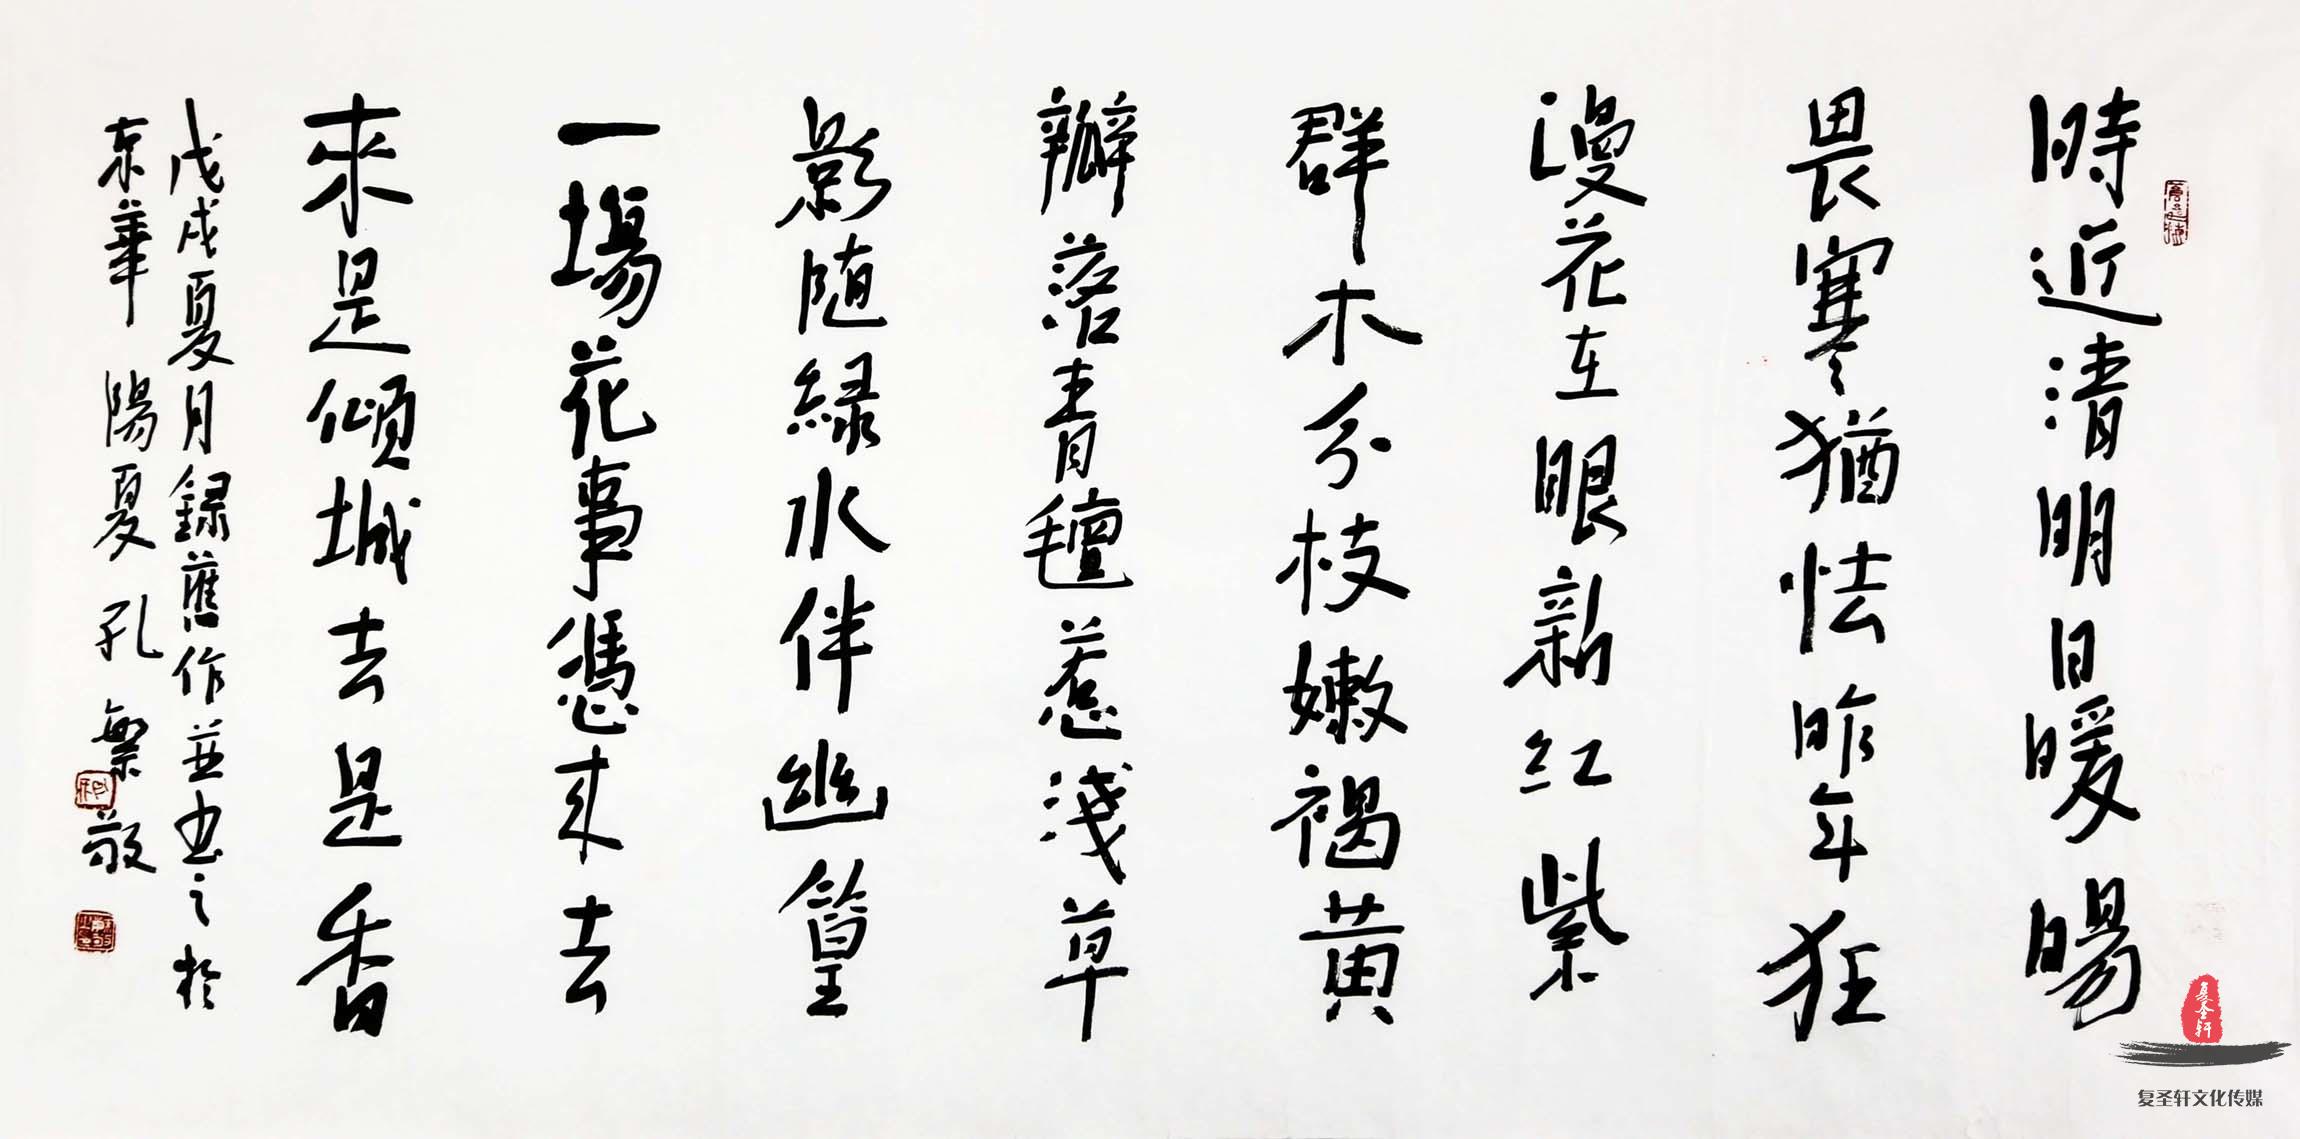 時近清明日暖暘
畏寒猶怯昨年狂
漫花在眼新红紫
群木分枝嫩褐黄
瓣落青氈惹淺草
影随緑水伴幽篁
一場花事憑来去
來是傾城去是香
戊戌夏月録舊作並书之於
东華 陽夏孔繁敬
复圣轩
复圣轩文化传媒